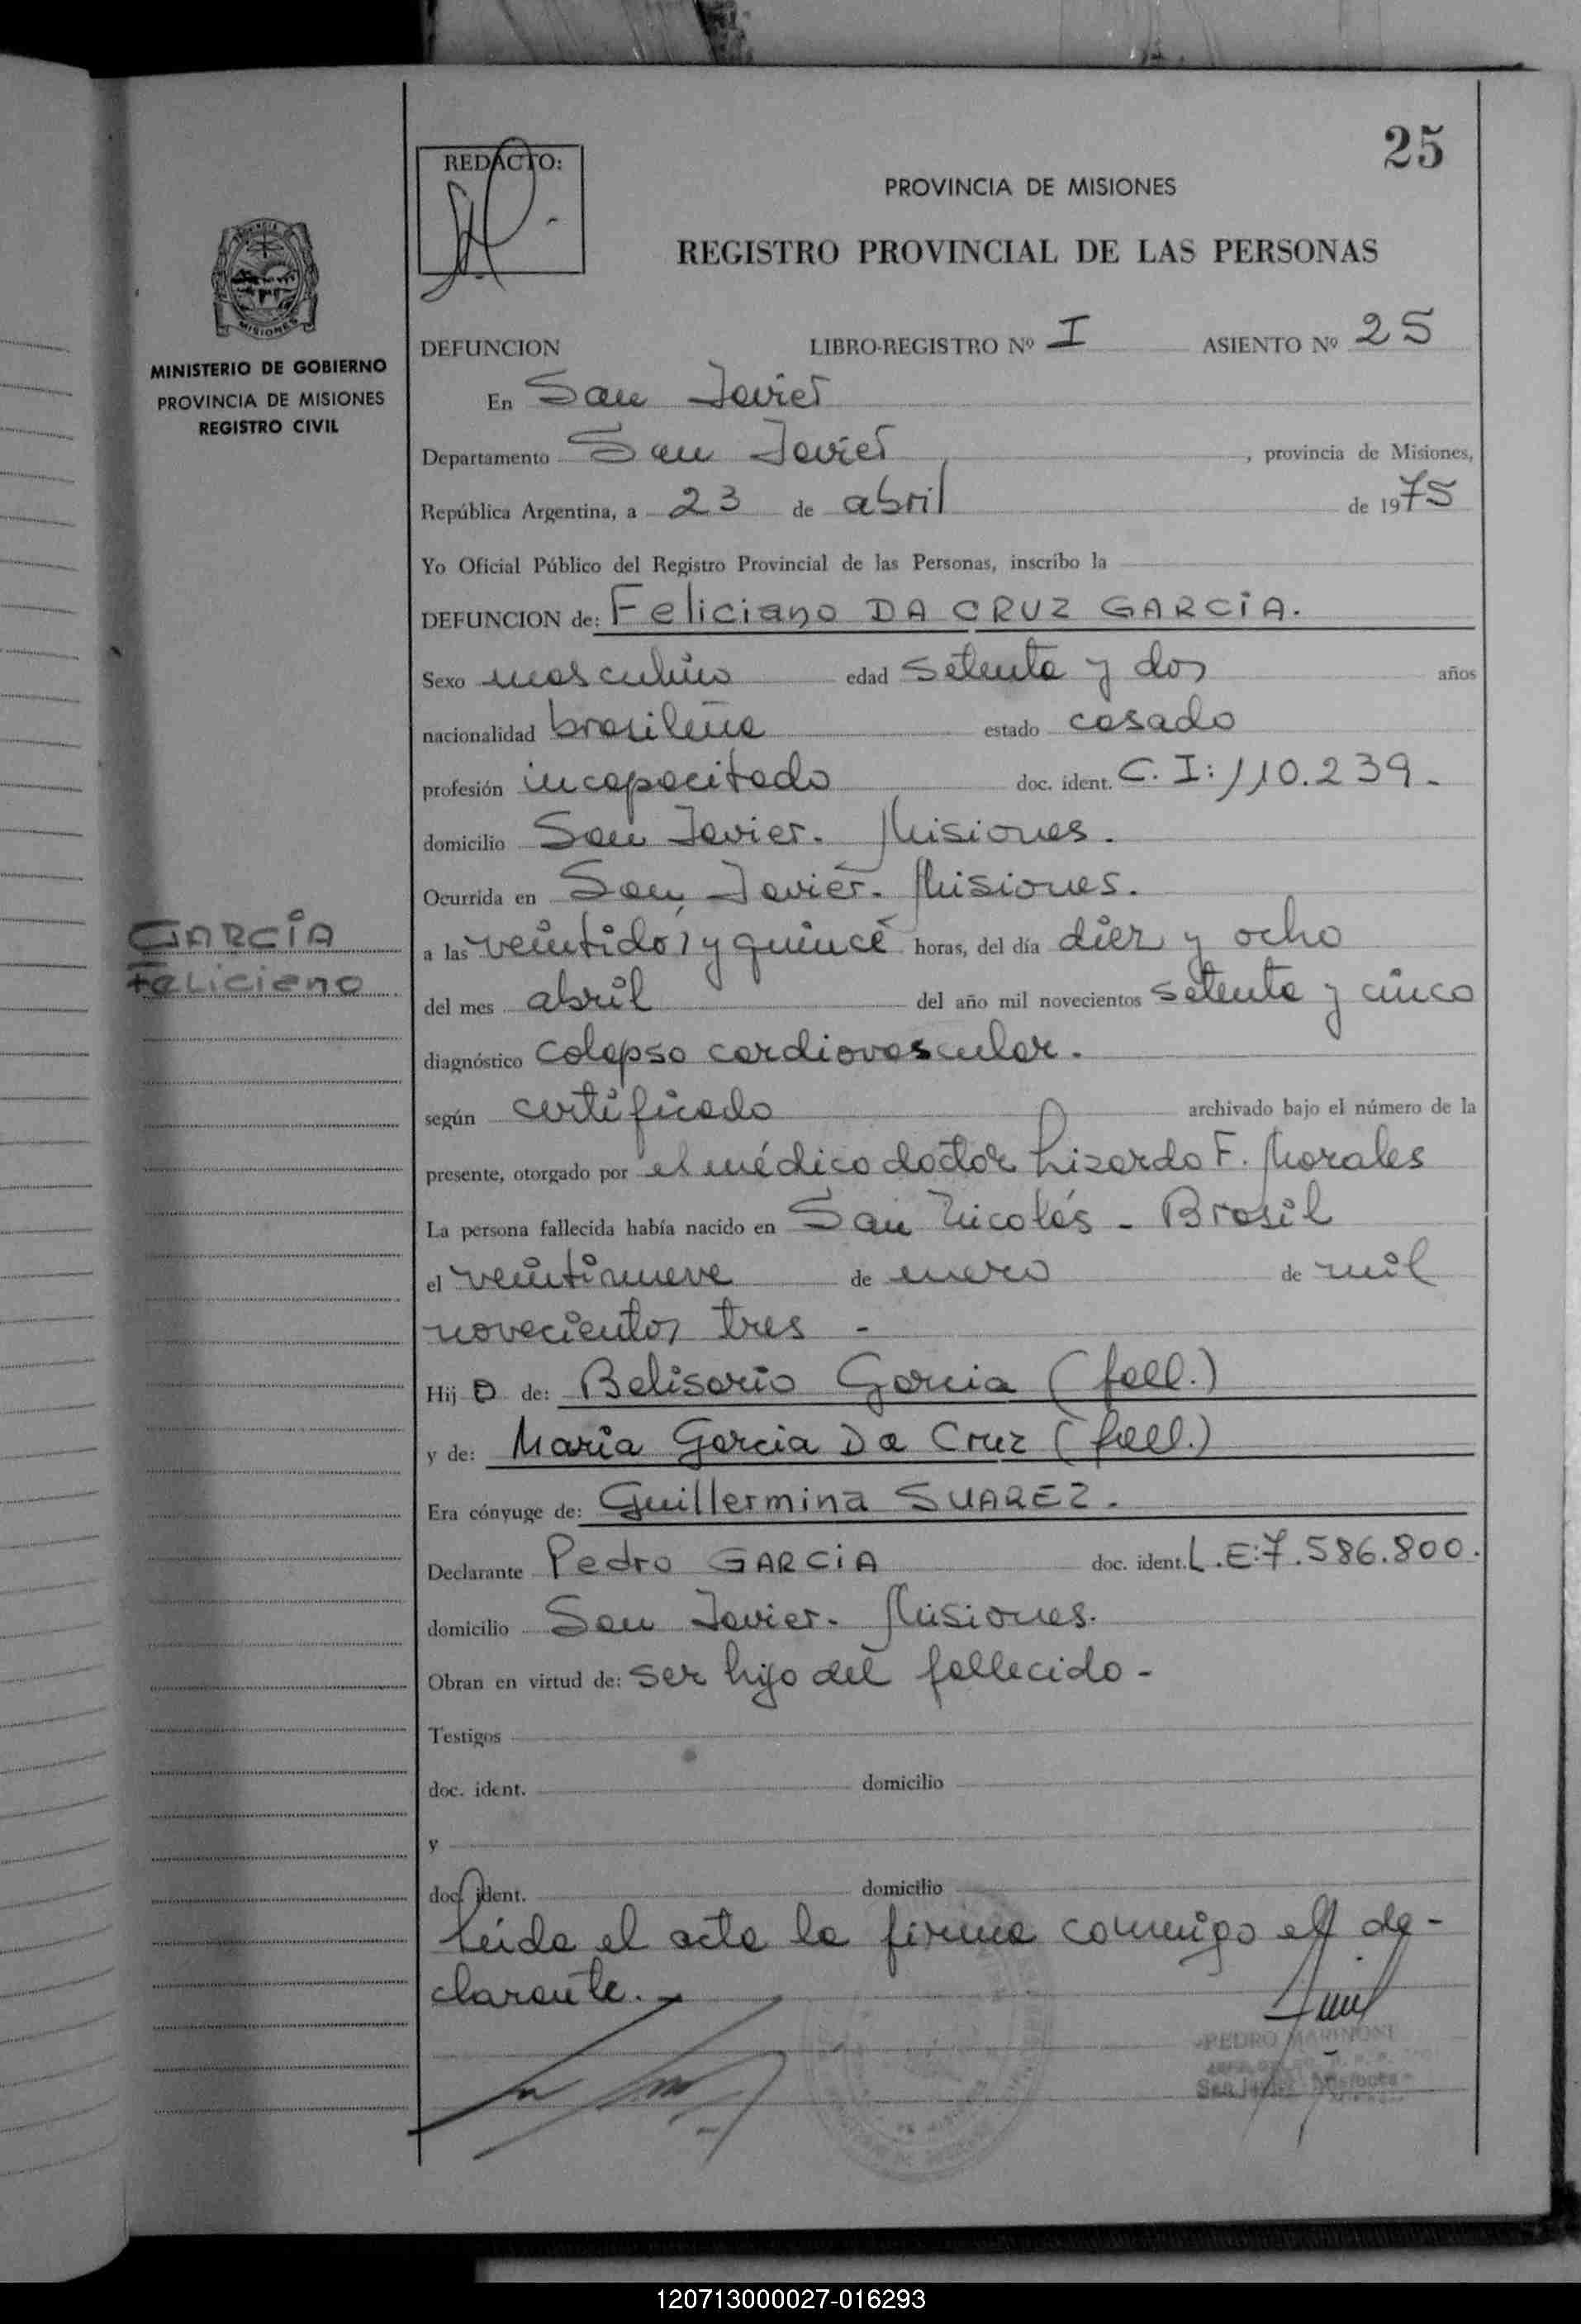 25
REDACTO:
PROVINCIA DE MISIONES
REGISTRO PROVINCIAL DE LAS PERSONAS
MISIONES
MINISTERIO DE GOBIERNO
PROVINCIA DE MISIONES
REGISTRO CIVIL
DEFUNCION LIBRO-REGISTRO Nº I ASIENTO Nº 25
En San Javier
Departamento San Javier, provincia de Misiones,
República Argentina, a 23 de abril de 1975
Yo Oficial Público del Registro Provincial de las Personas, inscribo la
DEFUNCION de: Feliciano DA CRUZ GARCIA.
Sexo masculino edad setenta y dos años
nacionalidad brasileña estado casado
profesión incapacitado doc. ident. C. I: 110.239-
domicilio San Javier. Misiones.
Ocurrida en San Javier. Misiones.
GARCIA
Feliciano
a las veintidos y quince horas, del día diez y ocho
del mes abril del año mil novecientos setenta y cinco
diagnóstico colapso cardiovascular.
según certificado archivado bajo el número de la
presente, otorgado por el médico doctor Lizardo F. Morales
La persona fallecida había nacido en San Nicolás - Brasil
el veintinueve de enero de mil
novecientos tres -
Hij o de: Belisario Garcia (fall.)
y de: Maria Garcia Da Cruz (fall.)
Era cónyuge de: Guillermina SUAREZ.
Declarante Pedro GARCIA doc. ident. L.E: 7.586.800.
domicilio San Javier. Misiones.
Obran en virtud de: ser hijo del fallecido -
Testigos
doc. ident. domicilio
y
doc. ident. domicilio
Leída el acta la firma conmigo el de-
clarante.-
PEDRO MARINONI
San Javier Misiones
120713000027-016293